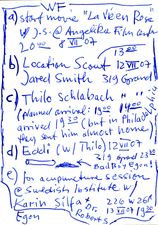 WF
a) start movie "La Vie en Rose"
w/ J.S. @ Angelika Film Center
20:00 8 VII 07
13:00
b) Location Scout 12 VII 07
Jared Smith 319 Grand
c) Thilo Schlabach
(planned arrival: 19:00
arrived 19:50 (but in Philadelphia
they sent him almost home)
d) Eddi (w/ Thilo) 12 VII 07
319 Grand 23:30
Bad Boy Egon!
e) for acupuncture session
@ Swedish Institute w/
Karin Silfa + Dr. 226 W 26th
Egon Roberts 13 VII 07